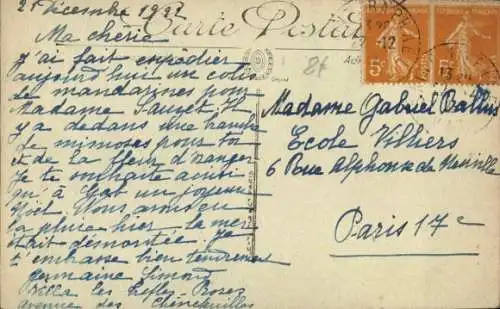 21 Décembre 1922
Carte Postale
Ma chérie
J'ai fait expédier
aujourd'hui un colis
de mandarines pour
Madame Sauzet. Il
y a dedans une branche
de mimosas pour toi
et de la fleur d'oranger
Je te souhaite aussi
qu'à Gab un joyeux
Noël. Nous avons eu
la pluie hier la mer
était démontée. Je
t'embrasse bien tendrement
germaine Simond
Villa les Trèfles Roses
avenue des
8f
5c 5c
Madame Gabriel Ballus
Ecole Villiers
6 Rue Alphonse de Neuville
Paris 17e